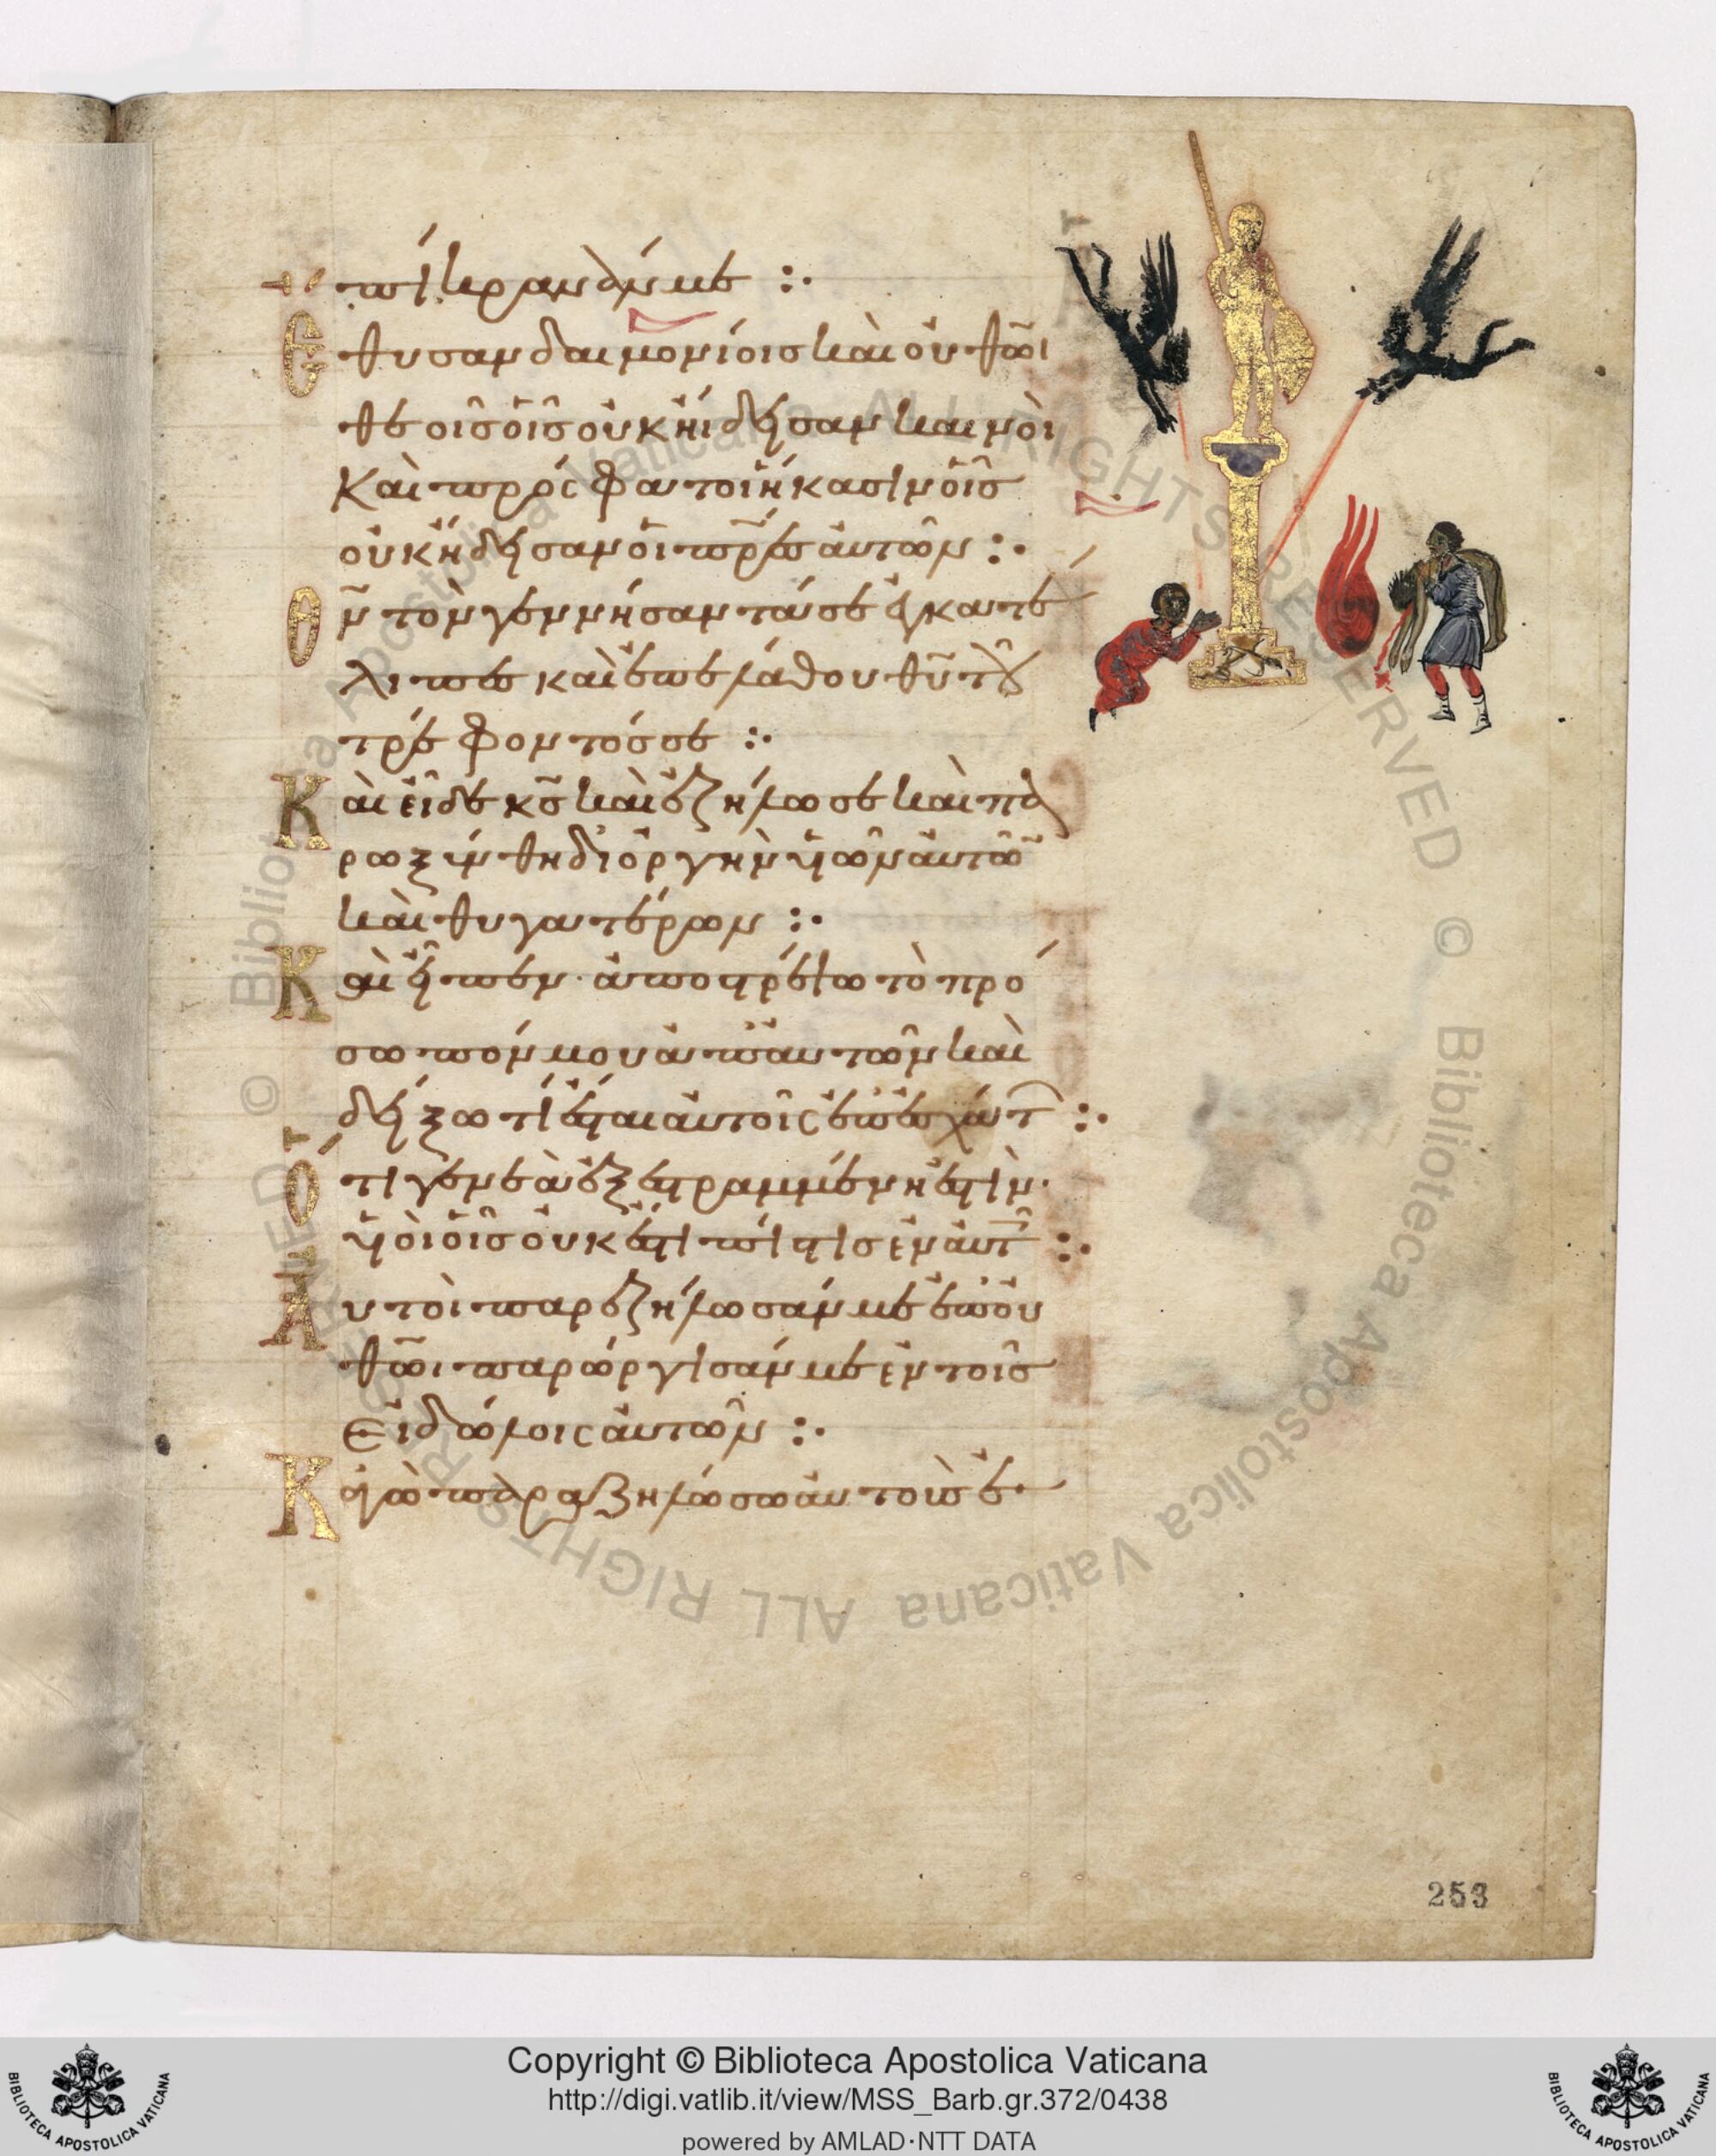 πίκραναν με :·
Ἔθυσαν δαιμονίοις καὶ οὐ θῶι
θε οἷς οἷς οὐκ ἤιδησαν καινοὶ
Καὶ πρόσφατοι ἥκασιν οἷς
οὐκ ἤδησαν οἱ πρ̅ε̅ς αὐτῶν :·
Θν̅ τὸν γεννήσαντά σε ἐγκατέ
λιπες καὶ ἐπελάθου θυ̅ τοῦ
τρέφοντός σε :·
Καὶ εἶδε κς̅ καὶ ἐζήλωσε καὶ πα
ρωξύνθη δι ὀργὴν υἱῶν αὐτῶ̅
καὶ θυγατέρων :·
Καὶ εἶπεν· ἀποστρέψω τὸ πρό
σωπόν μου ἀπ αὐτῶν καὶ
δείξω τί ἔσται αὐτοῖς ἐπ ἐσχάτ :·
Ὅτι γενεὰ ἐξεστραμμένη ἐστὶν·
υἱοὶ οἷς οὐκ ἔστι πίστις ἐν αὐτ :·
Αὐτοὶ παρεζήλωσάν με ἐπ οὐ
θῶι παρώργισάν με ἐν τοῖς
εἰδώλοις αὐτῶν :·
Κἀγὼ παραζηλώσω αὐτοὺς ἐ
253
Copyright © Biblioteca Apostolica Vaticana
http://digi.vatlib.it/view/MSS_Barb.gr.372/0438
powered by AMLAD·NTT DATA
BIBLIOTECA APOSTOLICA VATICANA
BIBLIOTECA APOSTOLICA VATICANA
© Biblioteca Apostolica Vaticana ALL RIGHTS RESERVED
© Biblioteca Apostolica Vaticana ALL RIGHTS RESERVED